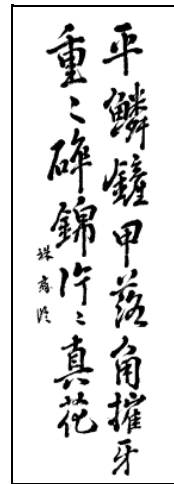 平鱗鏟甲落角摧牙
重〻碎錦片〻真花